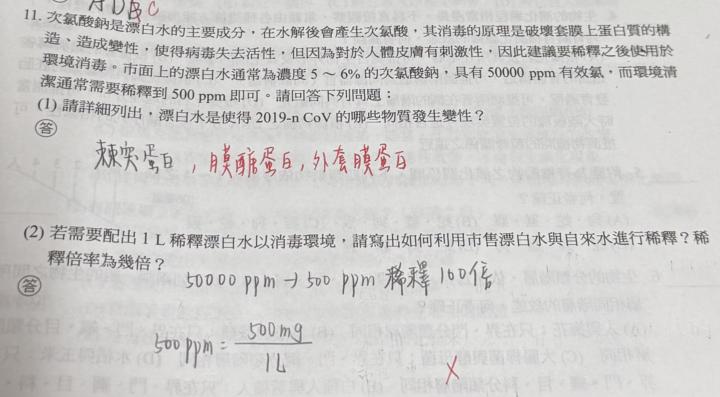 ADBC
11. 次氯酸鈉是漂白水的主要成分，在水解後會產生次氯酸，其消毒的原理是破壞套膜上蛋白質的構
造、造成變性，使得病毒失去活性，但因為對於人體皮膚有刺激性，因此建議要稀釋之後使用於
環境消毒。市面上的漂白水通常為濃度 5 ~ 6% 的次氯酸鈉，具有 50000 ppm 有效氯，而環境清
潔通常需要稀釋到 500 ppm 即可。請回答下列問題：
(1) 請詳細列出，漂白水是使得 2019-n CoV 的哪些物質發生變性？
答
棘突蛋白，膜醣蛋白，外套膜蛋白
(2) 若需要配出 1 L 稀釋漂白水以消毒環境，請寫出如何利用市售漂白水與自來水進行稀釋？稀
釋倍率為幾倍？
答
50000 ppm → 500 ppm 稀釋 100倍
500 ppm = 500 mg / 1L